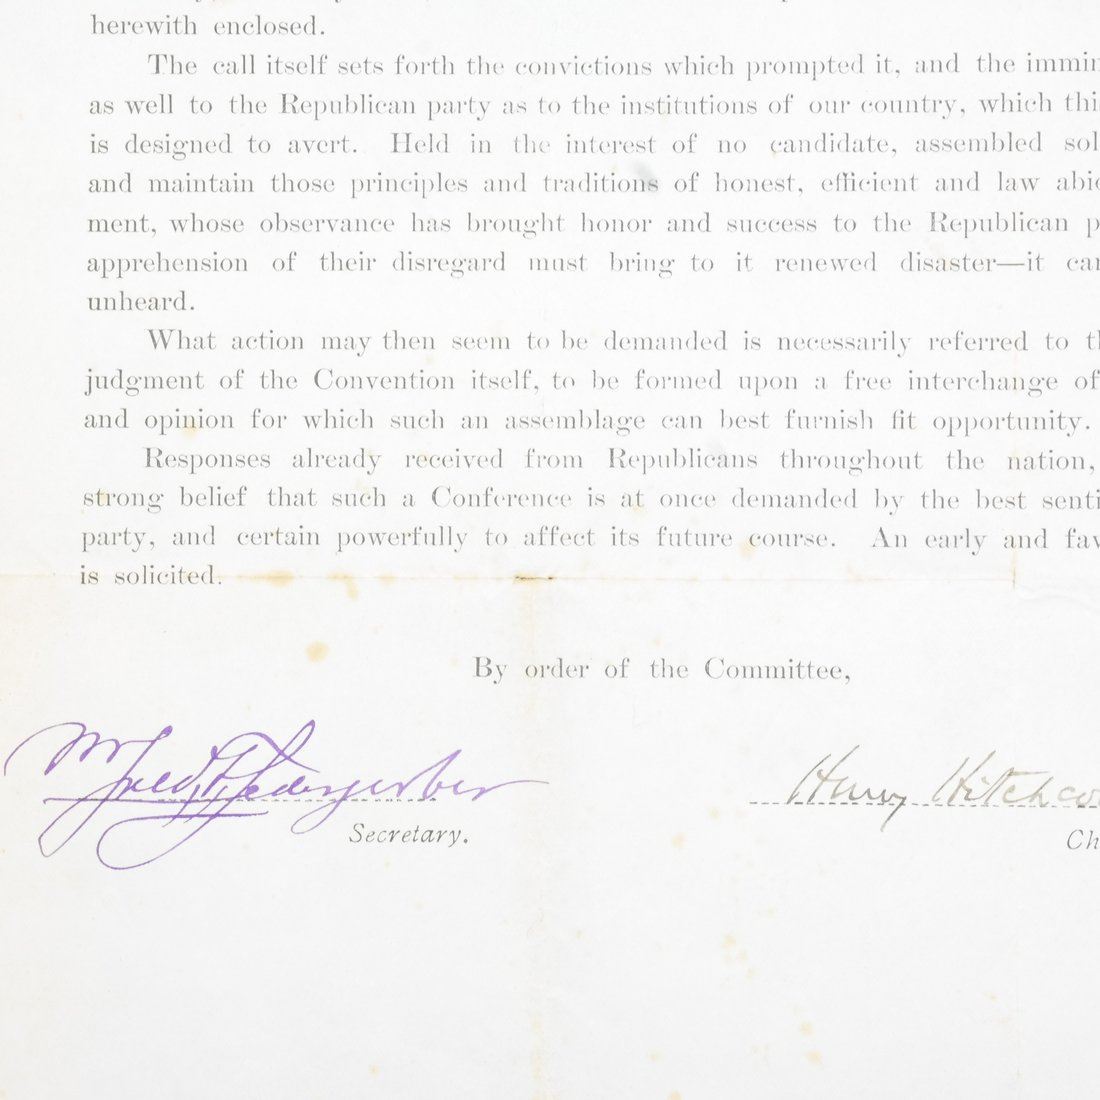 herewith enclosed.
The call itself sets forth the convictions which prompted it, and the immin
as well to the Republican party as to the institutions of our country, which thi
is designed to avert. Held in the interest of no candidate, assembled sol
and maintain those principles and traditions of honest, efficient and law abid
ment, whose observance has brought honor and success to the Republican p
apprehension of their disregard must bring to it renewed disaster—it can
unheard.
What action may then seem to be demanded is necessarily referred to th
judgment of the Convention itself, to be formed upon a free interchange of
and opinion for which such an assemblage can best furnish fit opportunity.
Responses already received from Republicans throughout the nation,
strong belief that such a Conference is at once demanded by the best senti
party, and certain powerfully to affect its future course. An early and fav
is solicited.
By order of the Committee,
Henry Hitchco
Secretary.
Ch